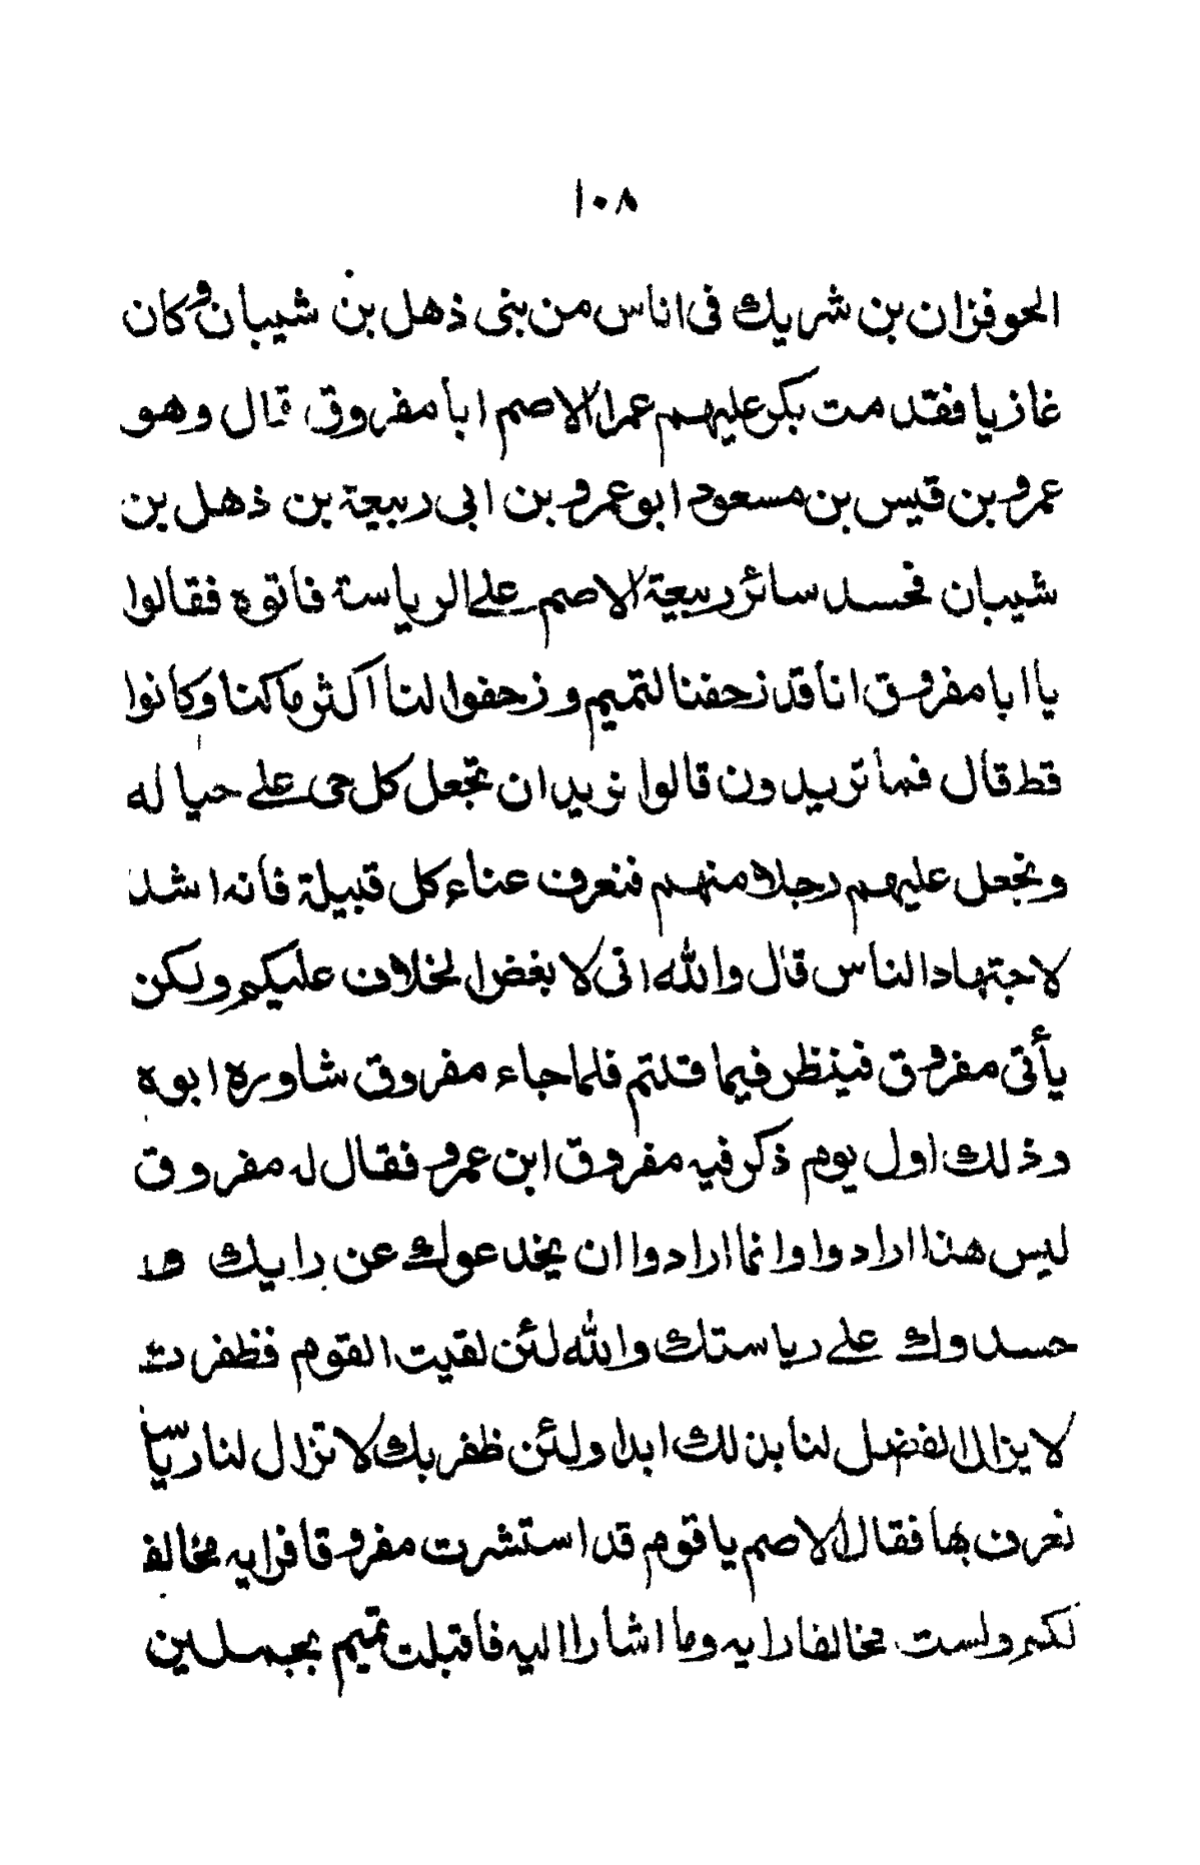 ١٠٨
الحوفزان بن شريك فى اناس من بنى ذهل بن شيبان وكان
غازيا فقد مت بكر عليهم عمرا الاصم ابا مفروق قال وهو
عمرو بن قيس بن مسعود ابو عمرو بن ابى ربيعة بن ذهل بن
شيبان فحسد سائر ربيعة الاصم على الرياسة فاتوه فقالوا
يا ابا مفروق انا قد زحفنا لتميم وزحفوا لنا اكثر ما كنا وكانوا
قط قال فما تريدون قالوا نريد ان نجعل كل حى على حياله
ونجعل عليهم رجلا منهم فنعرف عناء كل قبيلة فانه اشد
لاجتهاد الناس قال والله انى لا بغض الخلاف عليكم ولكن
يأتى مفروق فينظر فيما قلتم فلما جاء مفروق شاوره ابوه
وذلك اول يوم ذكر فيه مفروق ابن عمرو فقال له مفروق
ليس هذا ارادوا وانما ارادوا ان يخدعوك عن رايك و
حسدوك على رياستك والله لئن لقيت القوم فظفرت
لا يزال الفضل لنا بذلك ابدا ولئن ظفر بك لا تزال لنا رياسة
نعرف بها فقال الاصم يا قوم قد استشرت مفروقا فرايه مخالف
لكم ولست مخالفا رايه وما اشار اليه فاقبلت تميم بجملين